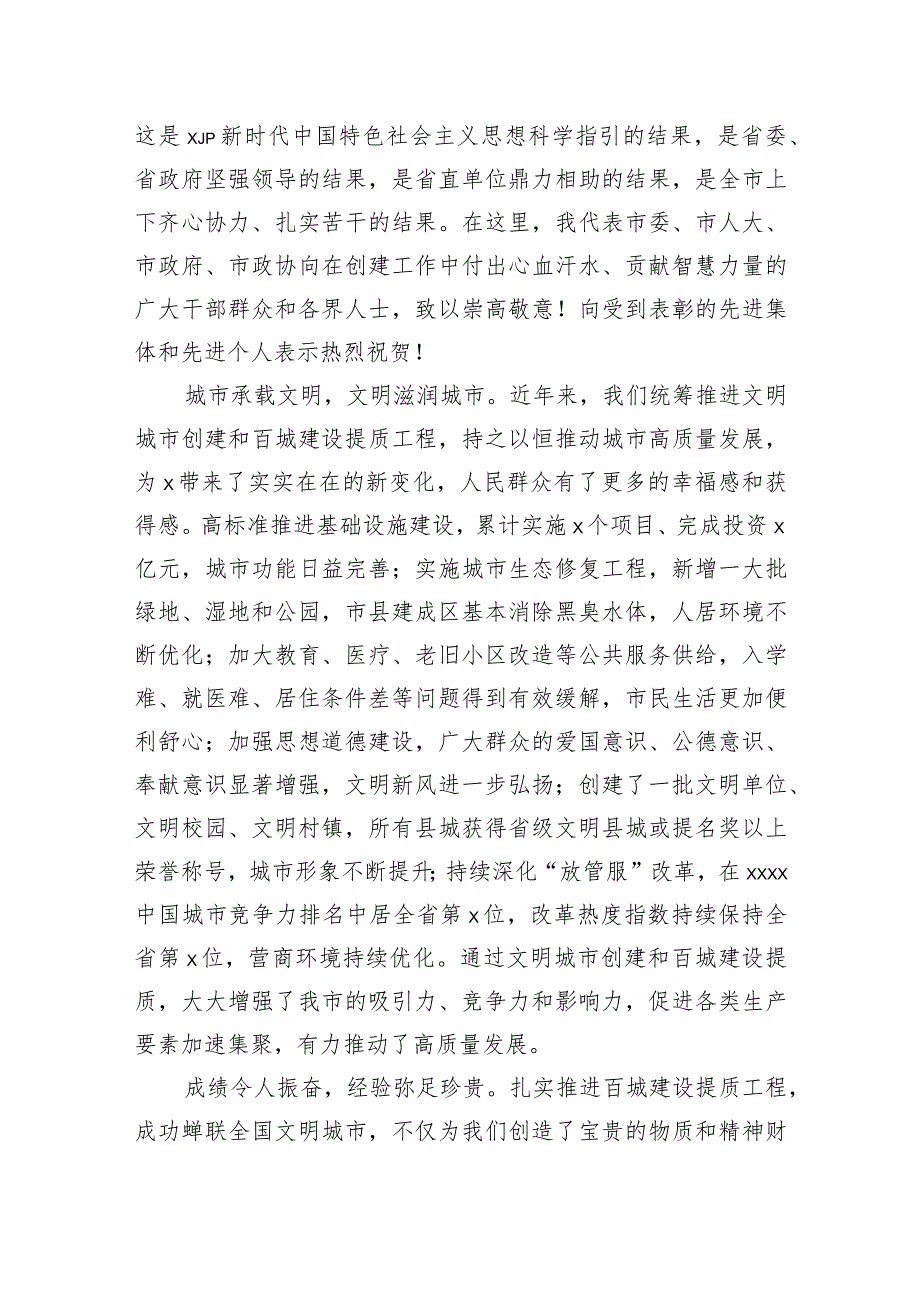 这是 XJP 新时代中国特色社会主义思想科学指引的结果，是省委、
省政府坚强领导的结果，是省直单位鼎力相助的结果，是全市上
下齐心协力、扎实苦干的结果。在这里，我代表市委、市人大、
市政府、市政协向在创建工作中付出心血汗水、贡献智慧力量的
广大干部群众和各界人士，致以崇高敬意！向受到表彰的先进集
体和先进个人表示热烈祝贺！
城市承载文明，文明滋润城市。近年来，我们统筹推进文明
城市创建和百城建设提质工程，持之以恒推动城市高质量发展，
为x带来了实实在在的新变化，人民群众有了更多的幸福感和获
得感。高标准推进基础设施建设，累计实施x个项目、完成投资x
亿元，城市功能日益完善；实施城市生态修复工程，新增一大批
绿地、湿地和公园，市县建成区基本消除黑臭水体，人居环境不
断优化；加大教育、医疗、老旧小区改造等公共服务供给，入学
难、就医难、居住条件差等问题得到有效缓解，市民生活更加便
利舒心；加强思想道德建设，广大群众的爱国意识、公德意识、
奉献意识显著增强，文明新风进一步弘扬；创建了一批文明单位、
文明校园、文明村镇，所有县城获得省级文明县城或提名奖以上
荣誉称号，城市形象不断提升；持续深化“放管服”改革，在xxxx
中国城市竞争力排名中居全省第x位，改革热度指数持续保持全
省第x位，营商环境持续优化。通过文明城市创建和百城建设提
质，大大增强了我市的吸引力、竞争力和影响力，促进各类生产
要素加速集聚，有力推动了高质量发展。
成绩令人振奋，经验弥足珍贵。扎实推进百城建设提质工程，
成功蝉联全国文明城市，不仅为我们创造了宝贵的物质和精神财